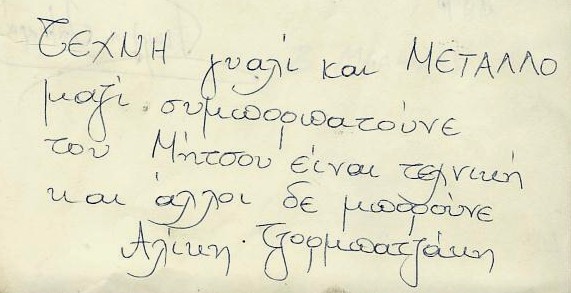 ΤΕΧΝΗ γυαλί και ΜΕΤΑΛΛΟ
μαζί συμπορπατούνε
του Μήτσου είναι τεχνική
και άλλοι δε μπορούνε
Αλίκη Τζορμπατζάκη